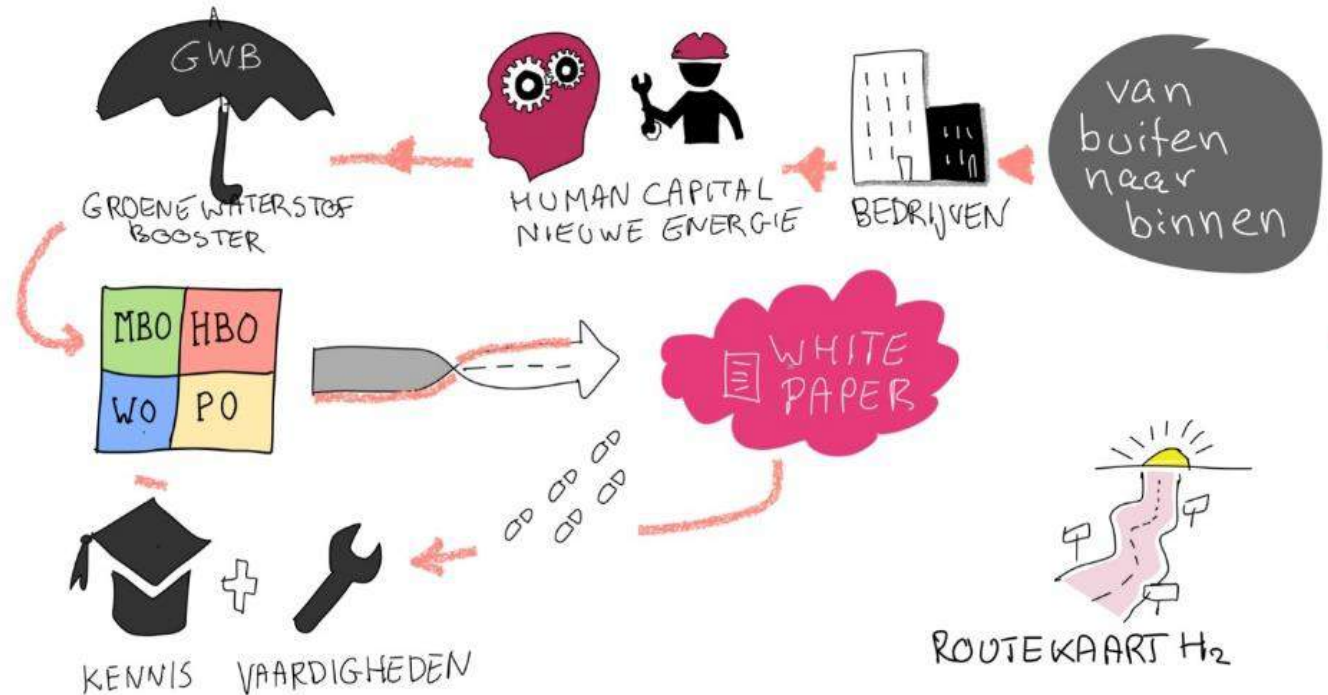 GWB
GROENE WATERSTOF
BOOSTER
HUMAN CAPITAL
NIEUWE ENERGIE
BEDRIJVEN
van
buiten
naar
binnen
MBO
HBO
WO
PO
WHITE
PAPER
KENNIS
VAARDIGHEDEN
ROUTEKAART H₂